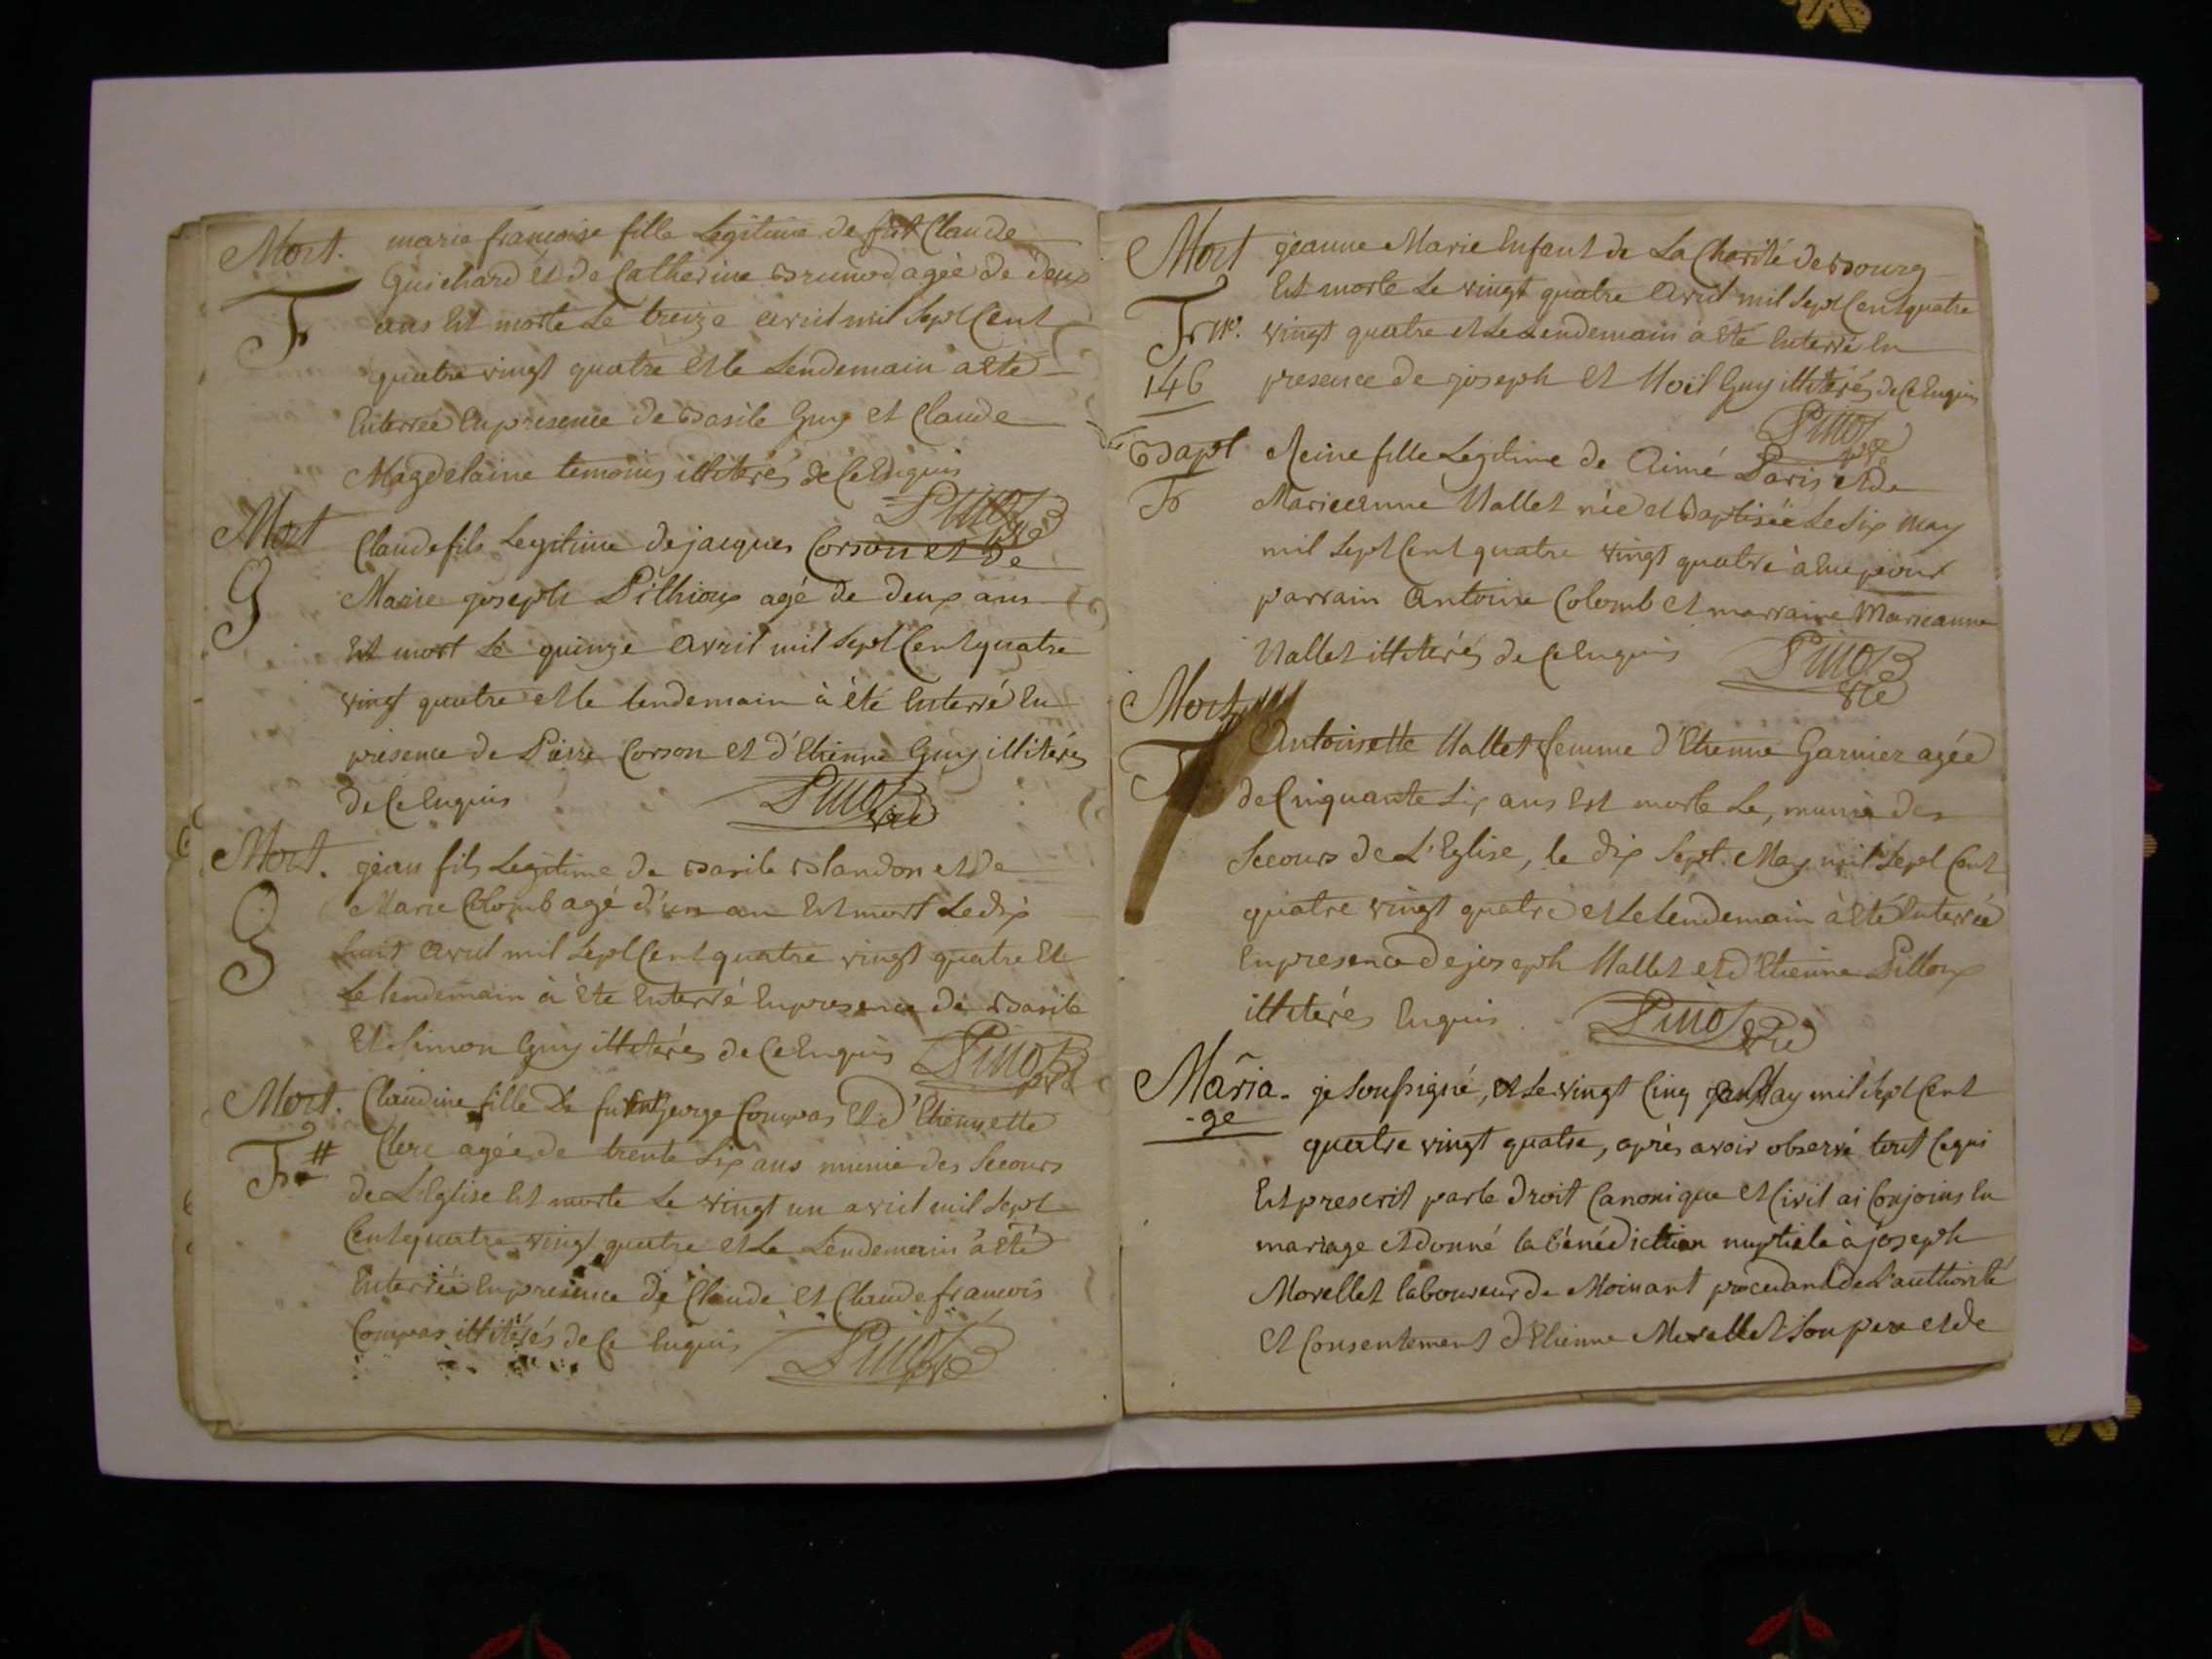 Mort. marie francoise fille Legitime de fut Claude
Guichard et de Catherine Brunod agée de deux
F ans est morte Le treize avril mil Sept Cent
quatre vingt quatre et le Lendemain a ete
enterrée en presence de Basile Guy et Claude
Magdelaine temoins illiterés de Ce Enquis
Mort Claude fils Legitime de jacques Corson et de
G Marie joseph Pithioux agé de deux ans
est mort Le quinze avril mil Sept Cent quatre
vingt quatre et le lendemain à été enterré en
présence de Pierre Corson et d'Etienne Guy illiterés
de Ce Enquis
Mort. jean fils Legitime de Basile Blandon et de
Marie Colomb agé d'un an est mort Le dix
G huit avril mil Sept Cent quatre vingt quatre et
Le lendemain à éte enterré en presence de Basile
et Simon Guy illiterés de Ce Enquis
Mort. Claudine fille De fut George Compas et d'Etiennette
F # Clerc agée de trente Six ans munie des Secours
de L'Eglise est morte Le vingt un avril mil Sept
Cent quatre vingt quatre et Le Lendemain à été
enterrée en presence de Claude et Claude francois
Compas illitérés de Ce enquis
Mort jeanne Marie enfant de La Charité de Bourg
est morte Le vingt quatre avril mil Sept Cent quatre
F vingt quatre et Le Lendemain à éte enterré en
146 presence de joseph et Noël Guy illiterés de Ce Enquis
Bapt Reine fille Legitime de Aimé Paris et de
F Marieanne Vallet née et Baptisée Le Six may
mil Sept Cent quatre vingt quatre à eue pour
parrain Antoine Colomb et marraine Marieanne
Vallet illiterés de Ce Enquis
Mort
F Antoinette Vallet femme d'Etienne Garnier agée
de Cinquante Six ans est morte Le, munie des
Secours de L'Eglise, le dix Sept. May mil Sept Cent
quatre vingt quatre et Le Lendemain à été enterrée
en presence de joseph Vallet et d'Etienne Pilloux
illiterés enquis.
Maria- je Soussigné, et Le vingt Cinq May mil Sept Cent
-ge quatre vingt quatre, après avoir observé tout Ce qui
est prescrit par le droit Canonique et Civil ai Conjoins en
mariage et donné la bénédiction nuptiale à joseph
Morellet laboureur de Moinant procedant de L'authorité
et Consentement d'Etienne Morellet Son pere et de